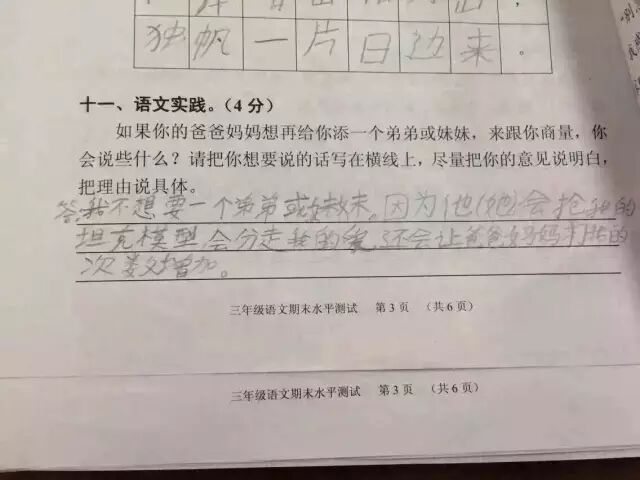 独帆一片日边来。
十一、语文实践。(4分)
如果你的爸爸妈妈想再给你添一个弟弟或妹妹，来跟你商量，你
会说些什么？请把你想要说的话写在横线上，尽量把你的意见说明白，
把理由说具体。
答:我不想要一个弟弟或妹妹。因为他(她)会抢我的
坦克模型,会分走我的爱,还会让爸爸妈妈的
次数增加。
三年级语文期末水平测试 第3页 （共6页）
三年级语文期末水平测试 第3页 （共6页）